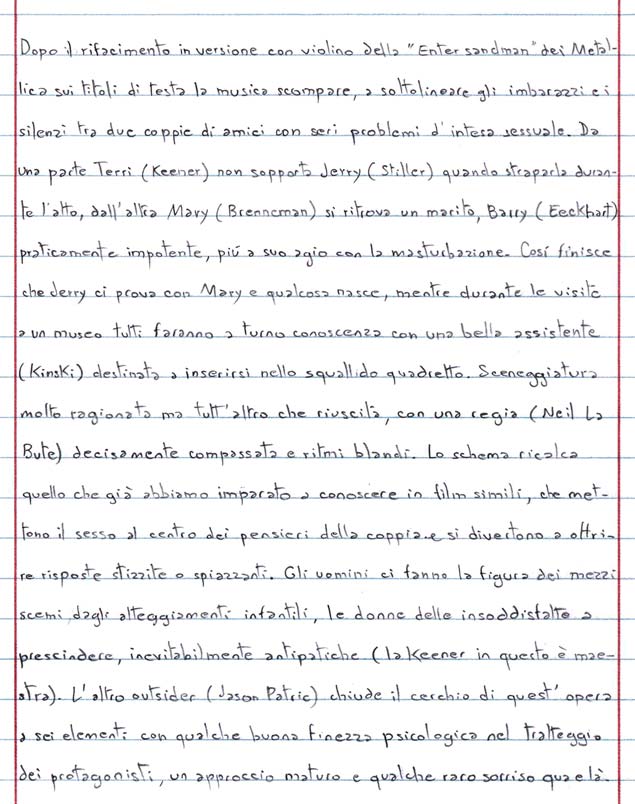 Dopo il rifacimento in versione con violino della "Enter sandman" dei Metal-
lica sui titoli di testa la musica scompare, a sottolineare gli imbarazzi e i
silenzi tra due coppie di amici con seri problemi d'intesa sessuale. Da
una parte Terri (Keener) non sopporta Jerry (Stiller) quando straparla duran-
te l'atto, dall'altra Mary (Brenneman) si ritrova un marito, Barry (Eeckhart)
praticamente impotente, più a suo agio con la masturbazione. Così finisce
che Jerry ci prova con Mary e qualcosa nasce, mentre durante le visite
a un museo tutti faranno a turno conoscenza con una bella assistente
(Kinski) destinata a inserirsi nello squallido quadretto. Sceneggiatura
molto ragionata ma tutt'altro che riuscita, con una regia (Neil La
Bute) decisamente compassata e ritmi blandi. Lo schema ricalca
quello che già abbiamo imparato a conoscere in film simili, che met-
tono il sesso al centro dei pensieri della coppia e si divertono a offri-
re risposte stizzite o spiazzanti. Gli uomini ci fanno la figura dei mezzi
scemi dagli atteggiamenti infantili, le donne delle insoddisfatte a
prescindere, inevitabilmente antipatiche (la Keener in questo è mae-
stra). L'altro outsider (Jason Patric) chiude il cerchio di quest'opera
a sei elementi con qualche buona finezza psicologica nel tratteggio
dei protagonisti, un approccio maturo e qualche raro sorriso qua e là.